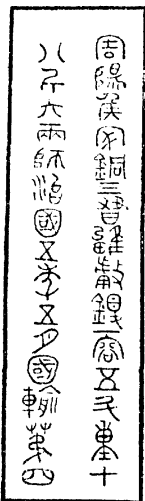 周陽侯家銅三習甗鍑一容五斗重十
八斤六兩師治國五年五月國輸第四